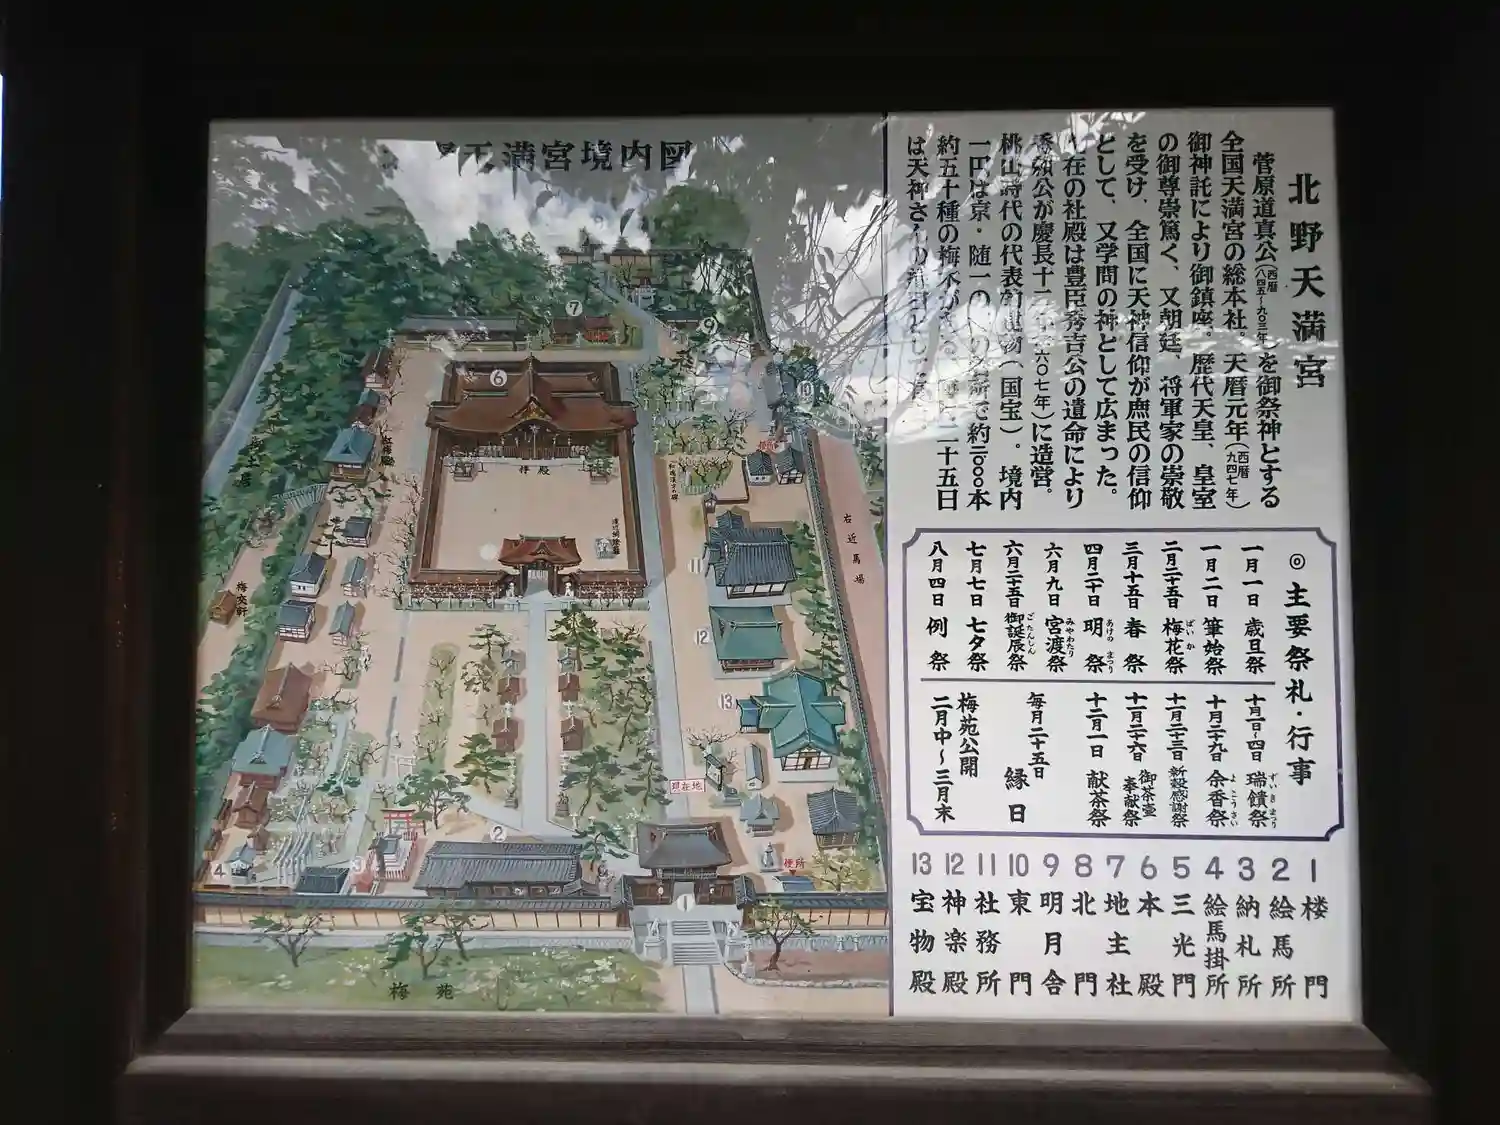 天満宮境内図
北野天満宮
菅原道真公(西暦八四五~九〇三年)を御祭神とする
全国天満宮の総本社。天暦元年(西暦九四七年)
御神託により御鎮座。歴代天皇、皇室
の御尊崇篤く、又朝廷、将軍家の崇敬
を受け、全国に天神信仰が庶民の信仰
として、又学問の神として広まった。
在の社殿は豊臣秀吉公の遺命により
秀頼公が慶長十二年 六〇七年)に造営。
桃山時代の代表的建物(国宝)。境内
一円は京・随一の の名所で約二〇〇〇本
約五十種の梅木が 二十五日
は天神さんの縁日とし
◎主要祭礼・行事
一月一日 歳旦祭
一月二日 筆始祭
二月二十五日 梅花祭 ばいか
三月十五日 春祭
四月二十日 明祭 あけの まつり
六月九日 宮渡祭 みやわたり
六月二十五日 御誕辰祭 ごたんしん
七月七日 七夕祭
八月四日 例祭
十月一日~四日 瑞饋祭 ずいきまつり
十月二十九日 余香祭 よこうさい
十一月二十三日 新穀感謝祭
十一月二十六日 御茶壷奉献祭
十二月一日 献茶祭
毎月二十五日 縁日
梅苑公開
二月中~三月末
1 楼門
2 絵馬所
3 納札所
4 絵馬掛所
5 三光門
6 本殿
7 地主社
8 北門
9 明月舎
10 東門
11 社務所
12 神楽殿
13 宝物殿
7
9
6
10
拝殿
右近馬場
11
梅交軒
12
13
現在地
2
便所
4
3
1
梅苑